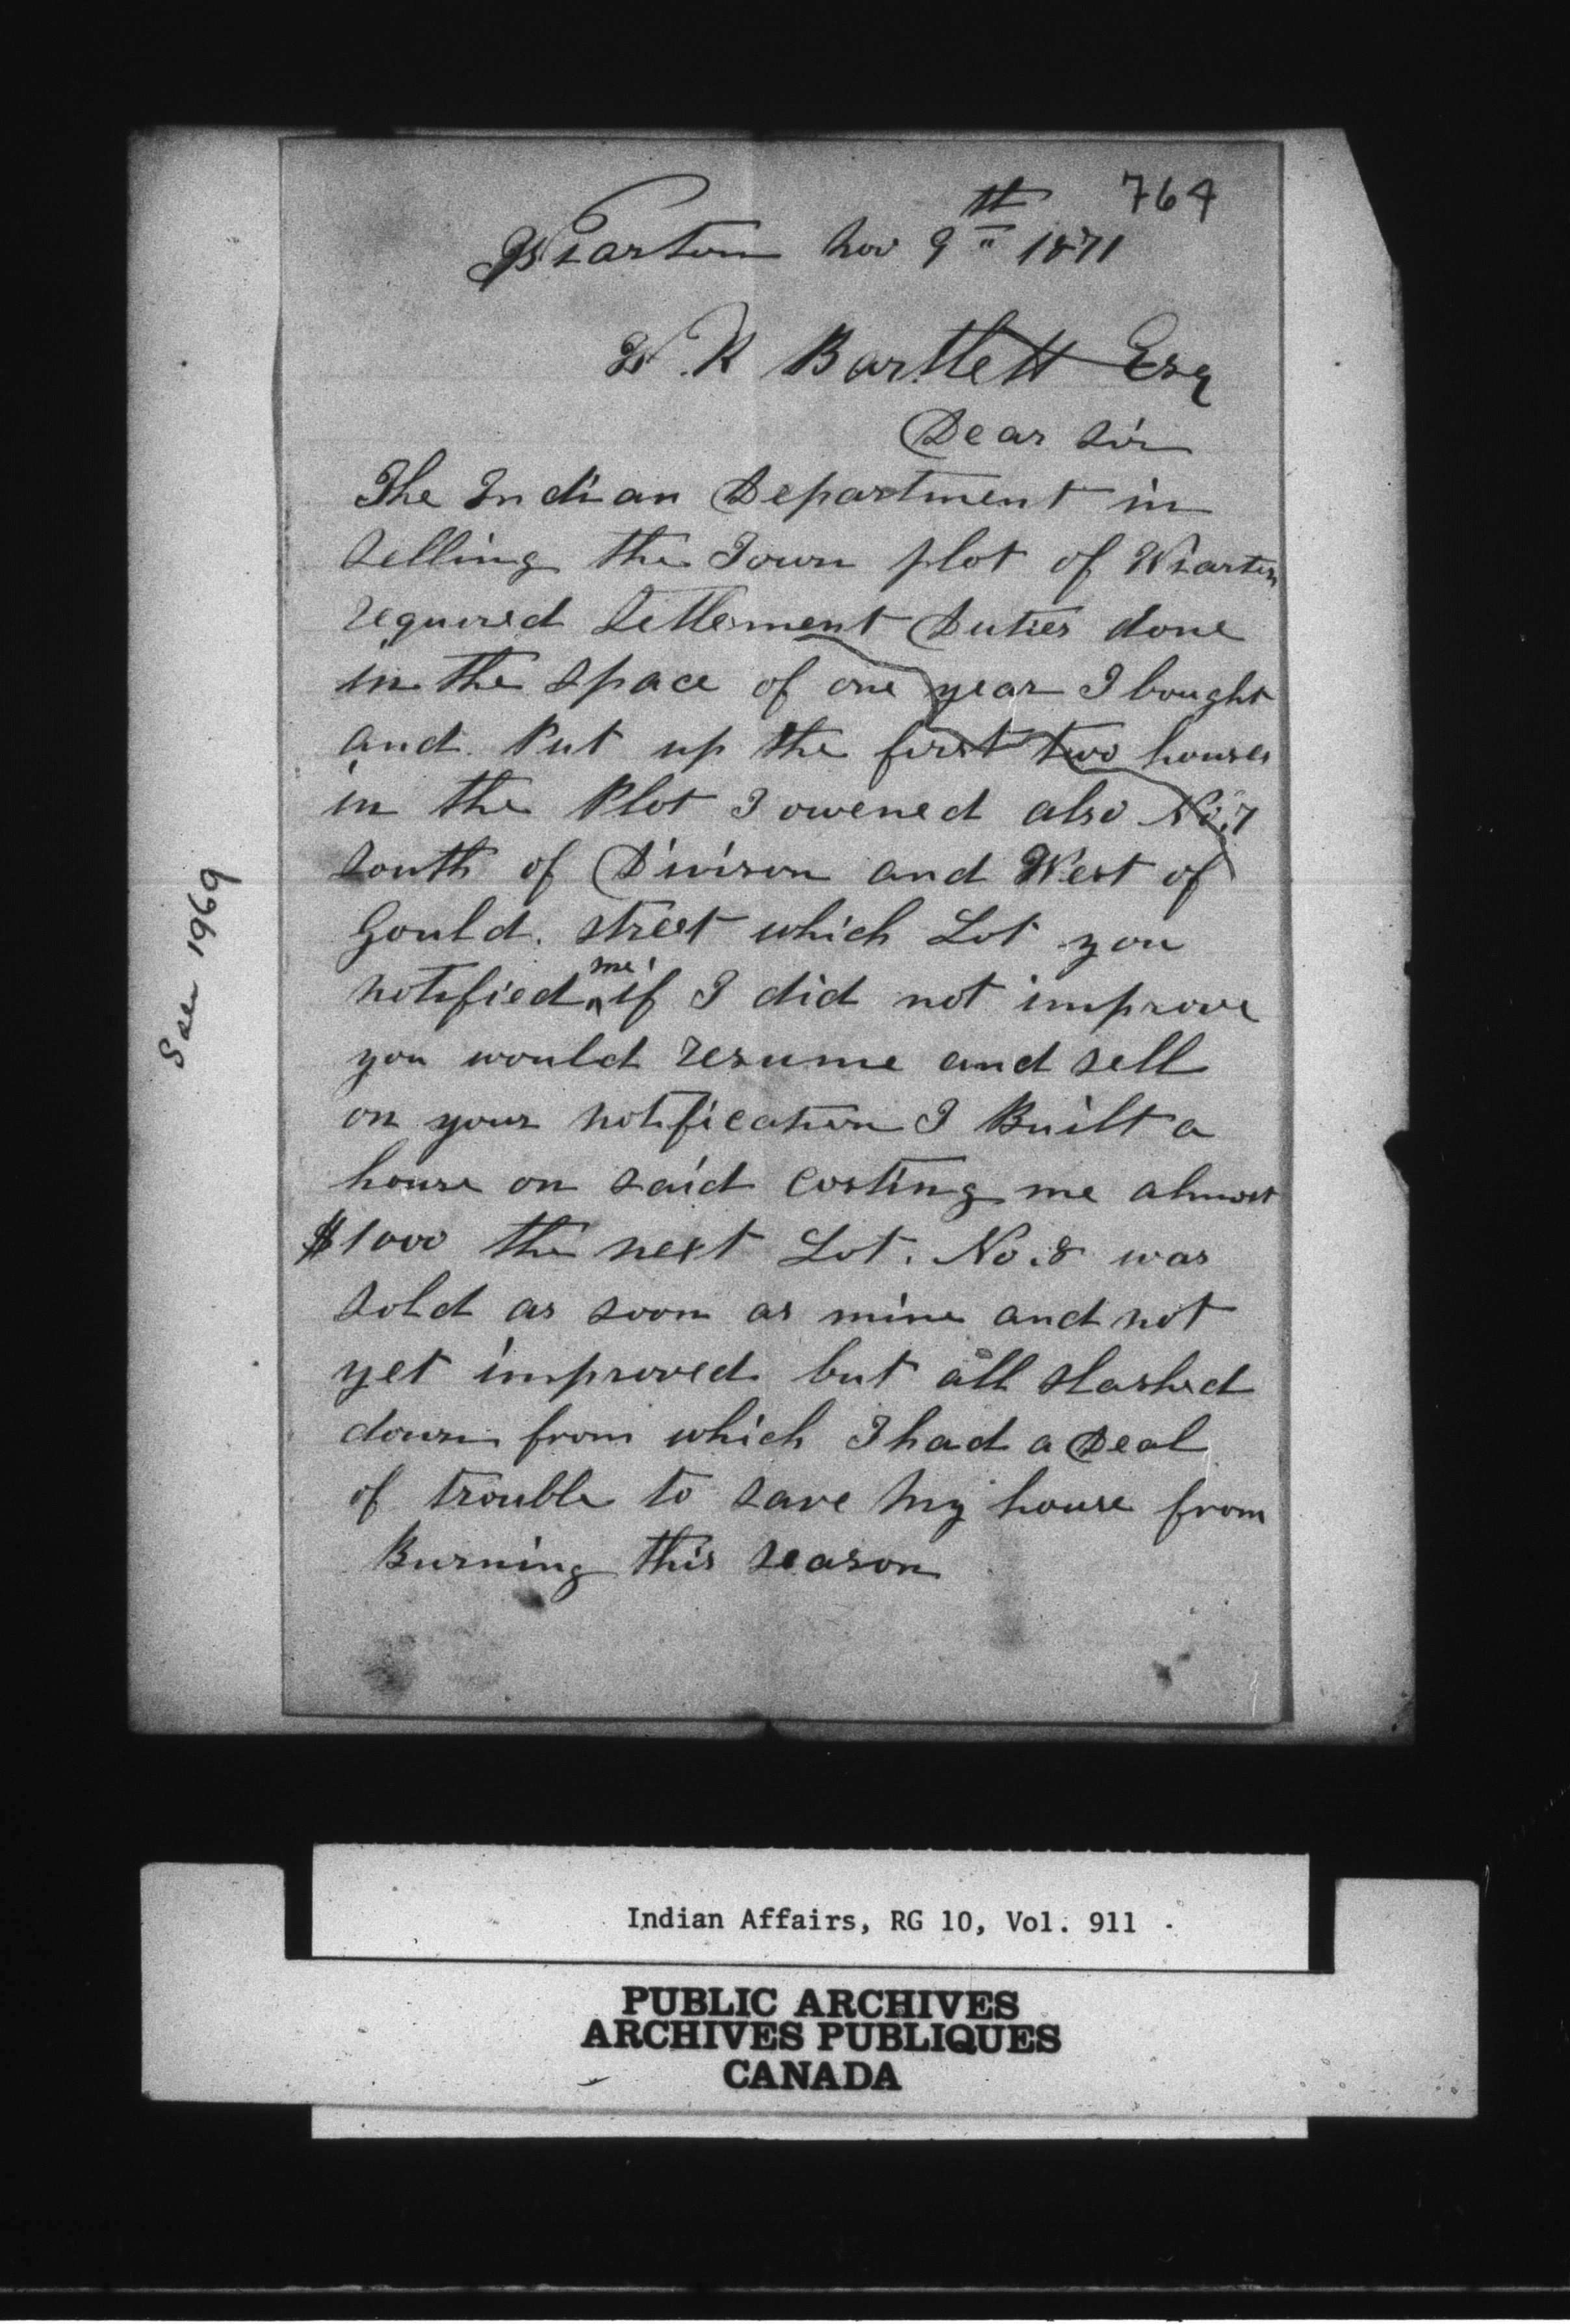 764
Wiarton Nov 9th 1871
W. R Bartlett Esq
Dear Sir
The Indian Department in
Selling the Town plot of Wiarton
required Settlement Duties done
in the space of one year I bought
and Put up the first two houses
in the Plot I owened also No. 7
South of Divison and West of
Gould. street which Lot you
notified me if I did not improve
you would resume and sell
on your notification I Built a
house on said costing me almost
$1000 the next Lot. No. 8 was
sold as soon as mine and not
yet improved but all slashed
down from which I had a Deal
of trouble to save my house from
Burning this season
See 1969
Indian Affairs, RG 10, Vol. 911
PUBLIC ARCHIVES
ARCHIVES PUBLIQUES
CANADA